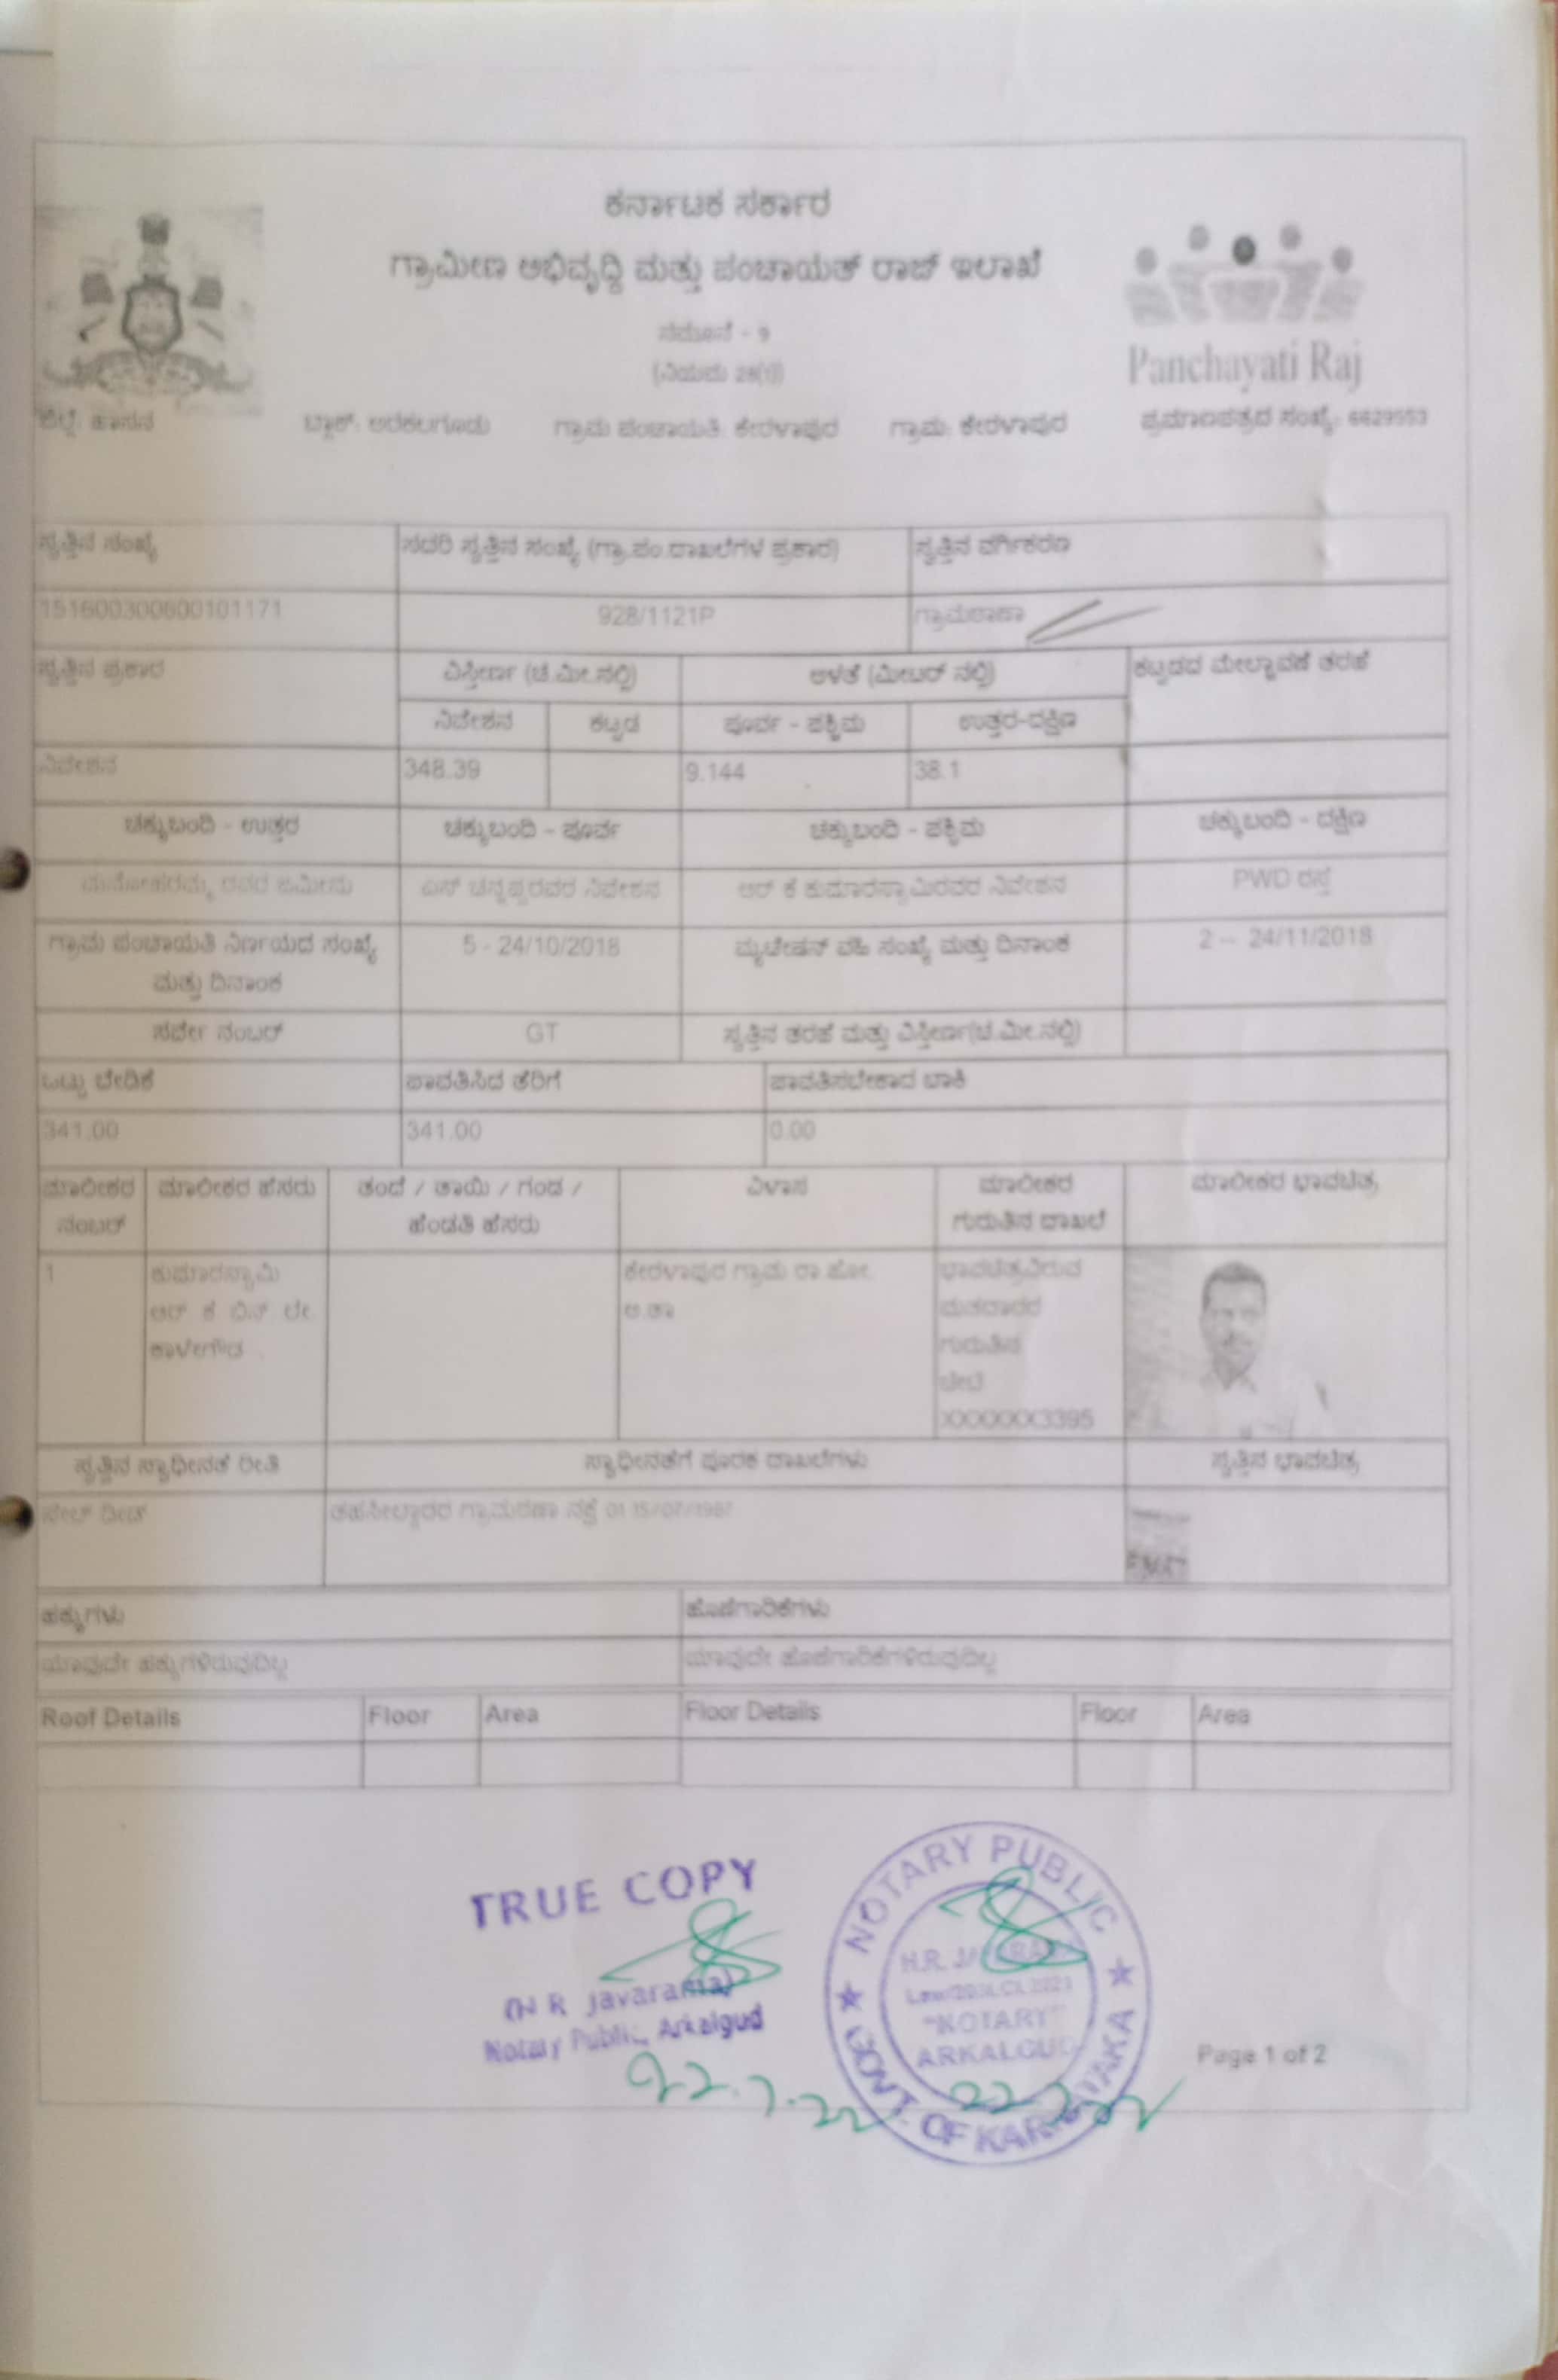 ಕರ್ನಾಟಕ ಸರ್ಕಾರ
ಗ್ರಾಮೀಣ ಅಭಿವೃದ್ಧಿ ಮತ್ತು ಪಂಚಾಯತ್ ರಾಜ್ ಇಲಾಖೆ
ನಮೂನೆ - 9
(ನಿಯಮ 28(1))
Panchayati Raj
ಜಿಲ್ಲೆ: ಹಾಸನ ಬ್ಲಾಕ್: ಅರಕಲಗೂಡು ಗ್ರಾಮ ಪಂಚಾಯತಿ: ಕೇರಳಾಪುರ ಗ್ರಾಮ: ಕೇರಳಾಪುರ ಪ್ರಮಾಣಪತ್ರದ ಸಂಖ್ಯೆ:
ಸ್ವತ್ತಿನ ಸಂಖ್ಯೆ ಸದರಿ ಸ್ವತ್ತಿನ ಸಂಖ್ಯೆ (ಗ್ರಾ.ಪಂ.ದಾಖಲೆಗಳ ಪ್ರಕಾರ) ಸ್ವತ್ತಿನ ವರ್ಗೀಕರಣ
151600300600101171 928/1121P ಗ್ರಾಮಠಾಣಾ
ಸ್ವತ್ತಿನ ಪ್ರಕಾರ ವಿಸ್ತೀರ್ಣ (ಚ.ಮೀ.ನಲ್ಲಿ) ಅಳತೆ (ಮೀಟರ್ ನಲ್ಲಿ) ಕಟ್ಟಡದ ಮೇಲ್ಛಾವಣಿ ತರಹೆ
ನಿವೇಶನ ಕಟ್ಟಡ ಪೂರ್ವ - ಪಶ್ಚಿಮ ಉತ್ತರ-ದಕ್ಷಿಣ
ನಿವೇಶನ 348.39 9.144 38.1
ಚಕ್ಕುಬಂದಿ - ಉತ್ತರ ಚಕ್ಕುಬಂದಿ - ಪೂರ್ವ ಚಕ್ಕುಬಂದಿ - ಪಶ್ಚಿಮ ಚಕ್ಕುಬಂದಿ - ದಕ್ಷಿಣ
ರವರ ಜಮೀನು ಎಸ್ ಚನ್ನಪ್ಪರವರ ನಿವೇಶನ ಆರ್ ಕೆ ಕುಮಾರಸ್ವಾಮಿರವರ ನಿವೇಶನ PWD ರಸ್ತೆ
ಗ್ರಾಮ ಪಂಚಾಯತಿ ನಿರ್ಣಯದ ಸಂಖ್ಯೆ 5 - 24/10/2018 ಮ್ಯುಟೇಷನ್ ವಹಿ ಸಂಖ್ಯೆ ಮತ್ತು ದಿನಾಂಕ 2 - 24/11/2018
ಮತ್ತು ದಿನಾಂಕ
ಸರ್ವೇ ನಂಬರ್ GT ಸ್ವತ್ತಿನ ತರಹೆ ಮತ್ತು ವಿಸ್ತೀರ್ಣ(ಚ.ಮೀ.ನಲ್ಲಿ)
ಒಟ್ಟು ಬೇಡಿಕೆ ಪಾವತಿಸಿದ ತೆರಿಗೆ ಪಾವತಿಸಬೇಕಾದ ಬಾಕಿ
341.00 341.00 0.00
ಮಾಲೀಕರ ಮಾಲೀಕರ ಹೆಸರು ತಂದೆ / ತಾಯಿ / ಗಂಡ / ವಿಳಾಸ ಮಾಲೀಕರ ಮಾಲೀಕರ ಭಾವಚಿತ್ರ
ನಂಬರ್ ಹೆಂಡತಿ ಹೆಸರು ಗುರುತಿನ ದಾಖಲೆ
1 ಕುಮಾರಸ್ವಾಮಿ ಕೇರಳಾಪುರ ಗ್ರಾಮ ರಾ.ಹೋ. ಭಾವಚಿತ್ರವಿರುವ
ಆರ್ ಕೆ ಬಿನ್ ಲೇ ಅ.ತಾ ಮತದಾರರ
ಕಾಳೇಗೌಡ ಗುರುತಿನ
ಚೀಟಿ
XXXXXXX3395
ಸ್ವತ್ತಿನ ಸ್ವಾಧೀನತೆ ರೀತಿ ಸ್ವಾಧೀನತೆಗೆ ಪೂರಕ ದಾಖಲೆಗಳು ಸ್ವತ್ತಿನ ಭಾವಚಿತ್ರ
ಸೇಲ್ ಡೀಡ್ ತಹಸೀಲ್ದಾರರ ಗ್ರಾಮಠಾಣಾ ನಕ್ಷೆ 01 15/07/1987
ಹಕ್ಕುಗಳು ಹೊಣೆಗಾರಿಕೆಗಳು
ಯಾವುದೇ ಹಕ್ಕುಗಳಿರುವುದಿಲ್ಲ ಯಾವುದೇ ಹೊಣೆಗಾರಿಕೆಗಳಿರುವುದಿಲ್ಲ
Roof Details Floor Area Floor Details Floor Area
TRUE COPY
(H R Javarama)
Notary Public, Arkalgud
22.7.22
NOTARY PUBLIC
H.R. JAVARAMA
"NOTARY"
ARKALGUD
GOVT. OF KARNATAKA
Page 1 of 2